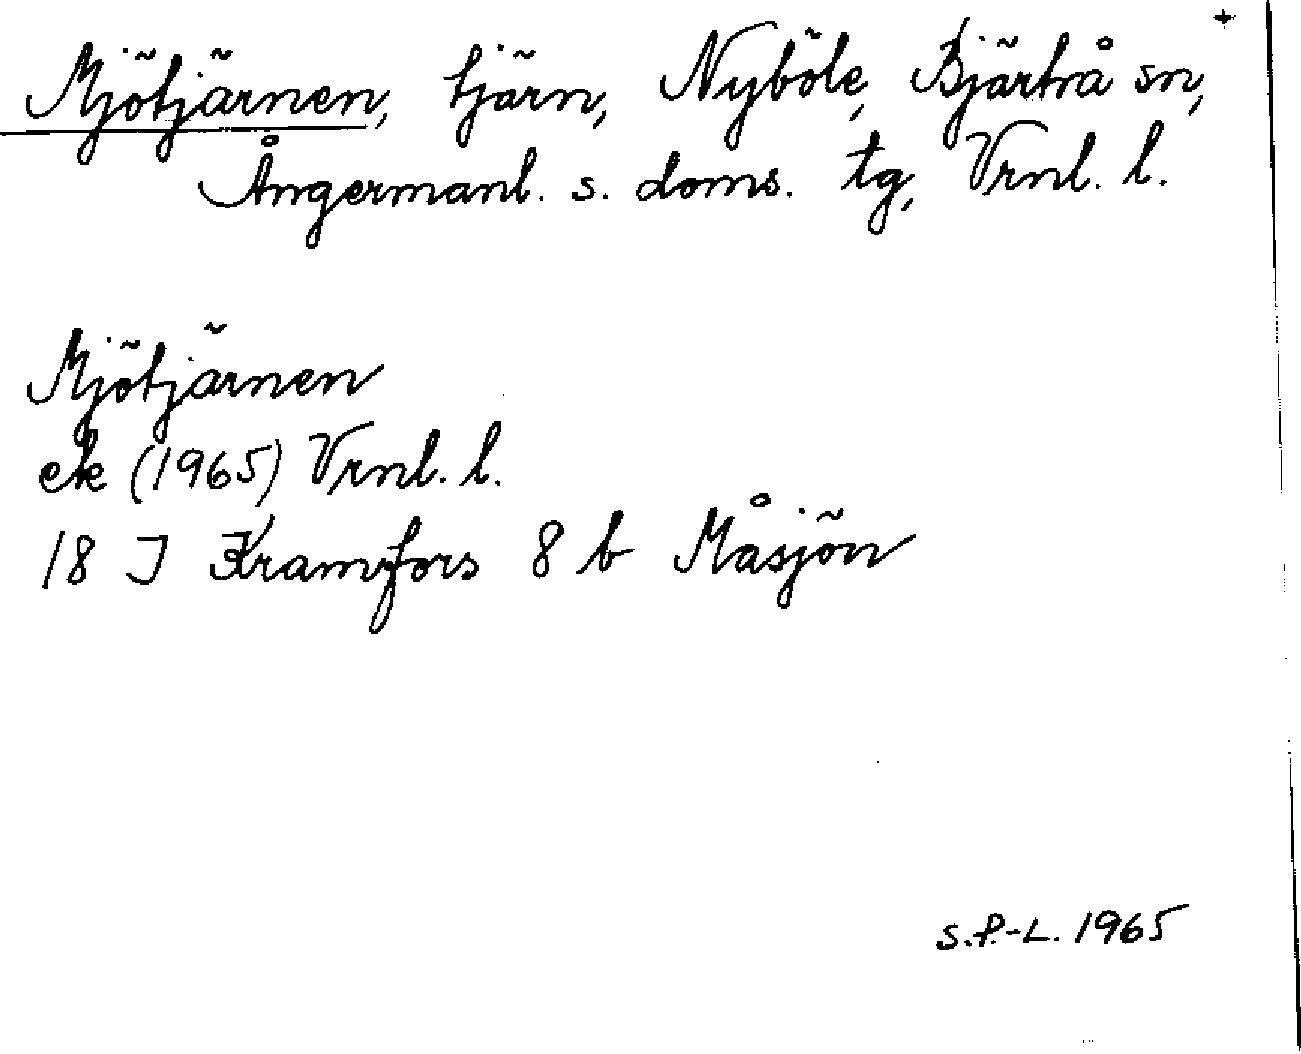 Mjötjärnen, tjärn, Nyböle, Bjärtrå sn,
Ångermanl. s. doms. tg, Vrnl. l.
Mjötjärnen
ek (1965) Vrnl. l.
18 I Kramfors 8 b Måsjön
S.P.-L. 1965